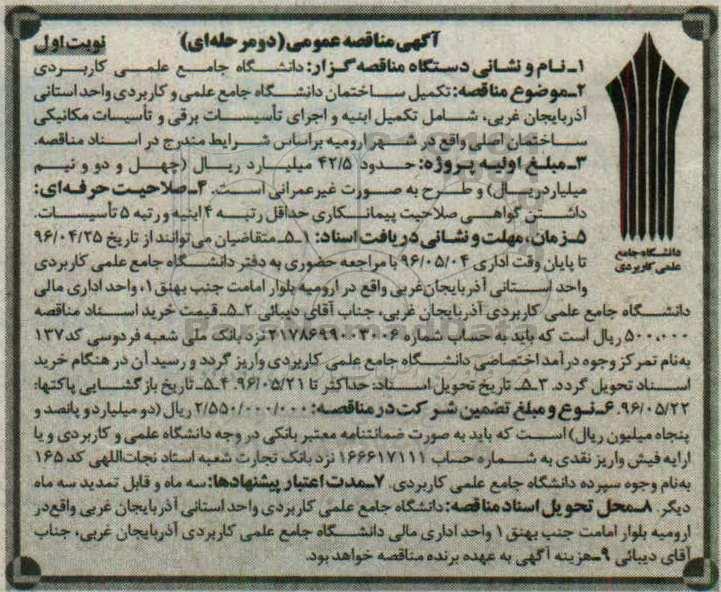 آگهی مناقصه عمومی (دو مرحله‌ای)
نوبت اول
۱ـ نام و نشانی دستگاه مناقصه گزار: دانشگاه جامع علمی کاربردی
۲ـ موضوع مناقصه: تکمیل ساختمان دانشگاه جامع علمی و کاربردی واحد استانی
آذربایجان غربی، شامل تکمیل ابنیه و اجرای تأسیسات برقی و تأسیسات مکانیکی
ساختمان اصلی واقع در شهر ارومیه براساس شرایط مندرج در اسناد مناقصه.
۳ـ مبلغ اولیه پروژه: حدود ۴۲/۵ میلیارد ریال (چهل و دو و نیم
میلیارد ریال) و طرح به صورت غیرعمرانی است. ۴ـ صلاحیت حرفه‌ای:
داشتن گواهی صلاحیت پیمانکاری حداقل رتبه ۴ ابنیه و رتبه ۵ تأسیسات.
۵ـ زمان، مهلت و نشانی دریافت اسناد: ۱ـ۵ـ متقاضیان می‌توانند از تاریخ ۹۶/۰۴/۲۵
تا پایان وقت اداری ۹۶/۰۵/۰۴ با مراجعه حضوری به دفتر دانشگاه جامع علمی کاربردی
واحد استانی آذربایجان غربی واقع در ارومیه بلوار امامت جنب بهنق ۱، واحد اداری مالی
دانشگاه جامع علمی کاربردی آذربایجان غربی، جناب آقای دیبائی ۲ـ۵ـ قیمت خرید اسناد مناقصه
۵۰۰,۰۰۰ ریال است که باید به حساب شماره ۲۱۷۸۶۹۹۰۰۳۰۰۶ نزد بانک ملی شعبه فردوسی کد ۱۳۷
به‌نام تمرکز وجوه درآمد اختصاصی دانشگاه جامع علمی کاربردی واریز گردد و رسید آن در هنگام خرید
اسناد تحویل گردد. ۳ـ۵ـ تاریخ تحویل اسناد: حداکثر تا ۹۶/۰۵/۲۱. ۴ـ۵ـ تاریخ بازگشایی پاکتها:
۹۶/۰۵/۲۲. ۶ـ نوع و مبلغ تضمین شرکت در مناقصه: ۲/۵۵۰/۰۰۰/۰۰۰ ریال (دو میلیارد و پانصد و
پنجاه میلیون ریال) است که باید به صورت ضمانتنامه معتبر بانکی در وجه دانشگاه علمی و کاربردی و یا
ارایه فیش واریز نقدی به شماره حساب ۱۶۶۶۱۷۱۱۱ نزد بانک تجارت شعبه استاد نجات‌اللهی کد ۱۶۵
به‌نام وجوه سپرده دانشگاه جامع علمی کاربردی. ۷ـ مدت اعتبار پیشنهادها: سه ماه و قابل تمدید سه ماه
دیگر. ۸ـ محل تحویل اسناد مناقصه: دانشگاه جامع علمی کاربردی واحد استانی آذربایجان غربی واقع در
ارومیه بلوار امامت جنب بهنق ۱ واحد اداری مالی دانشگاه جامع علمی کاربردی آذربایجان غربی، جناب
آقای دیبائی ۹ـ هزینه آگهی به عهده برنده مناقصه خواهد بود.
دانشگاه جامع
علمی کاربردی